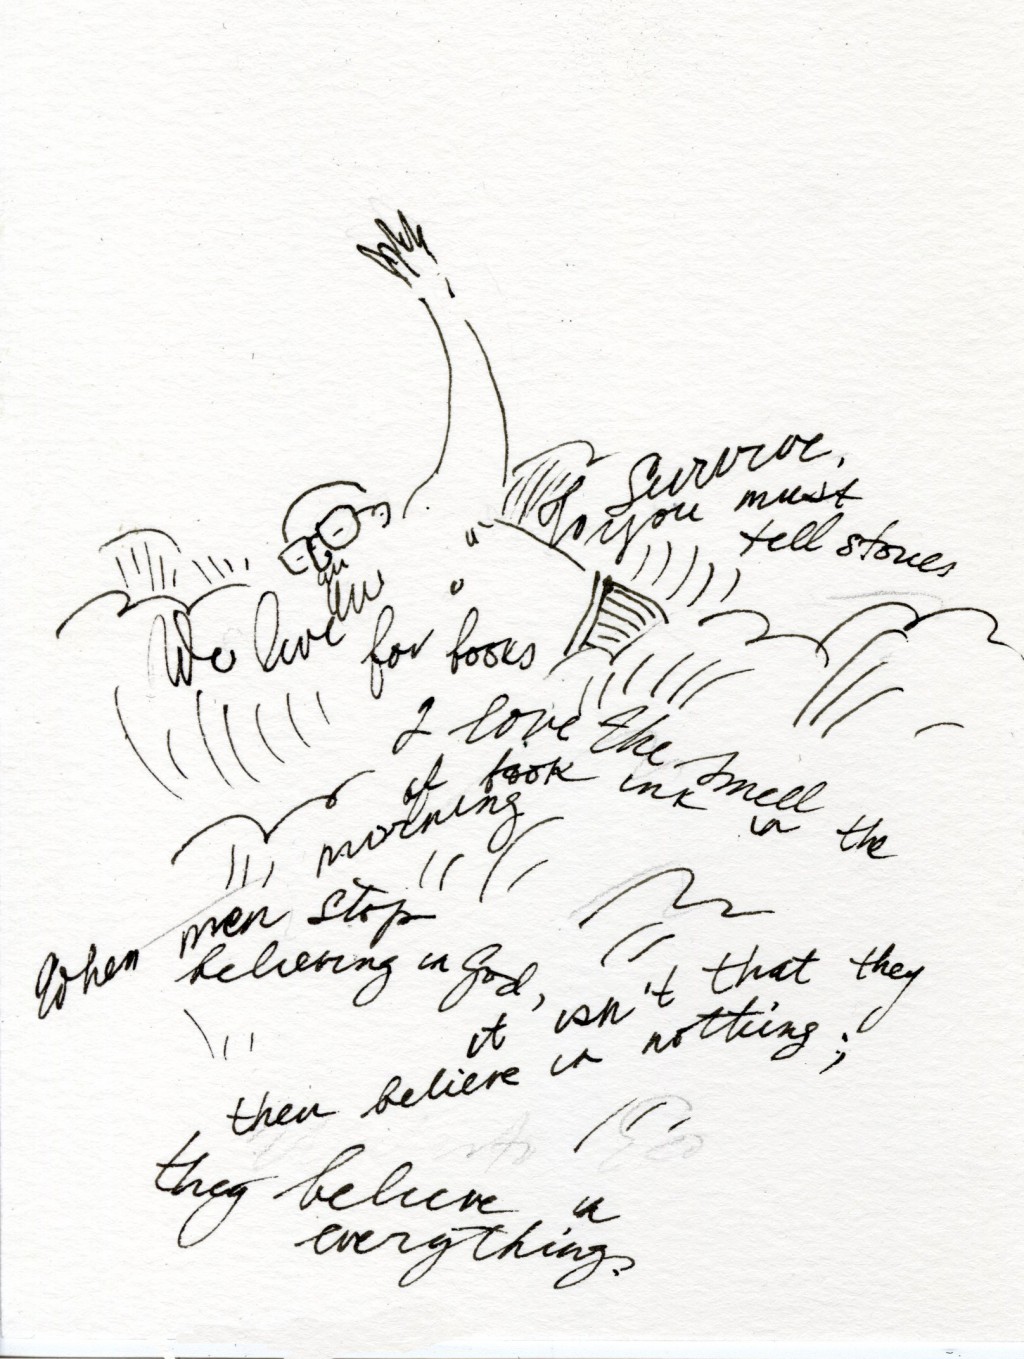 To survive,
you must
tell stories
We live
for books
I love the smell
of book ink in the
morning
When men stop
believing in God,
it isn't that they
then believe in nothing;
they believe in
everything.